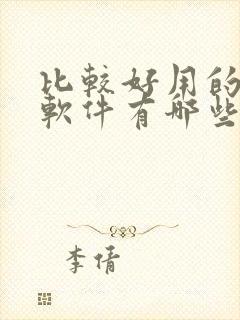 比較好用的
軟件有哪些
李倩